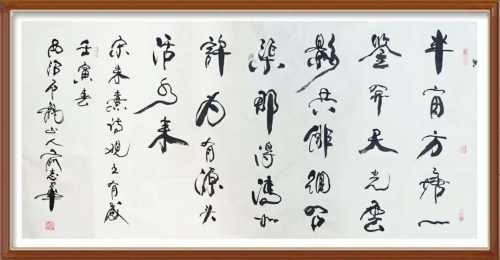 半亩方塘一
鉴开天光雲
影共徘徊问
渠那得清如
许为有源头
活水来
宋朱熹诗观书有感
壬寅春
山人俞志華